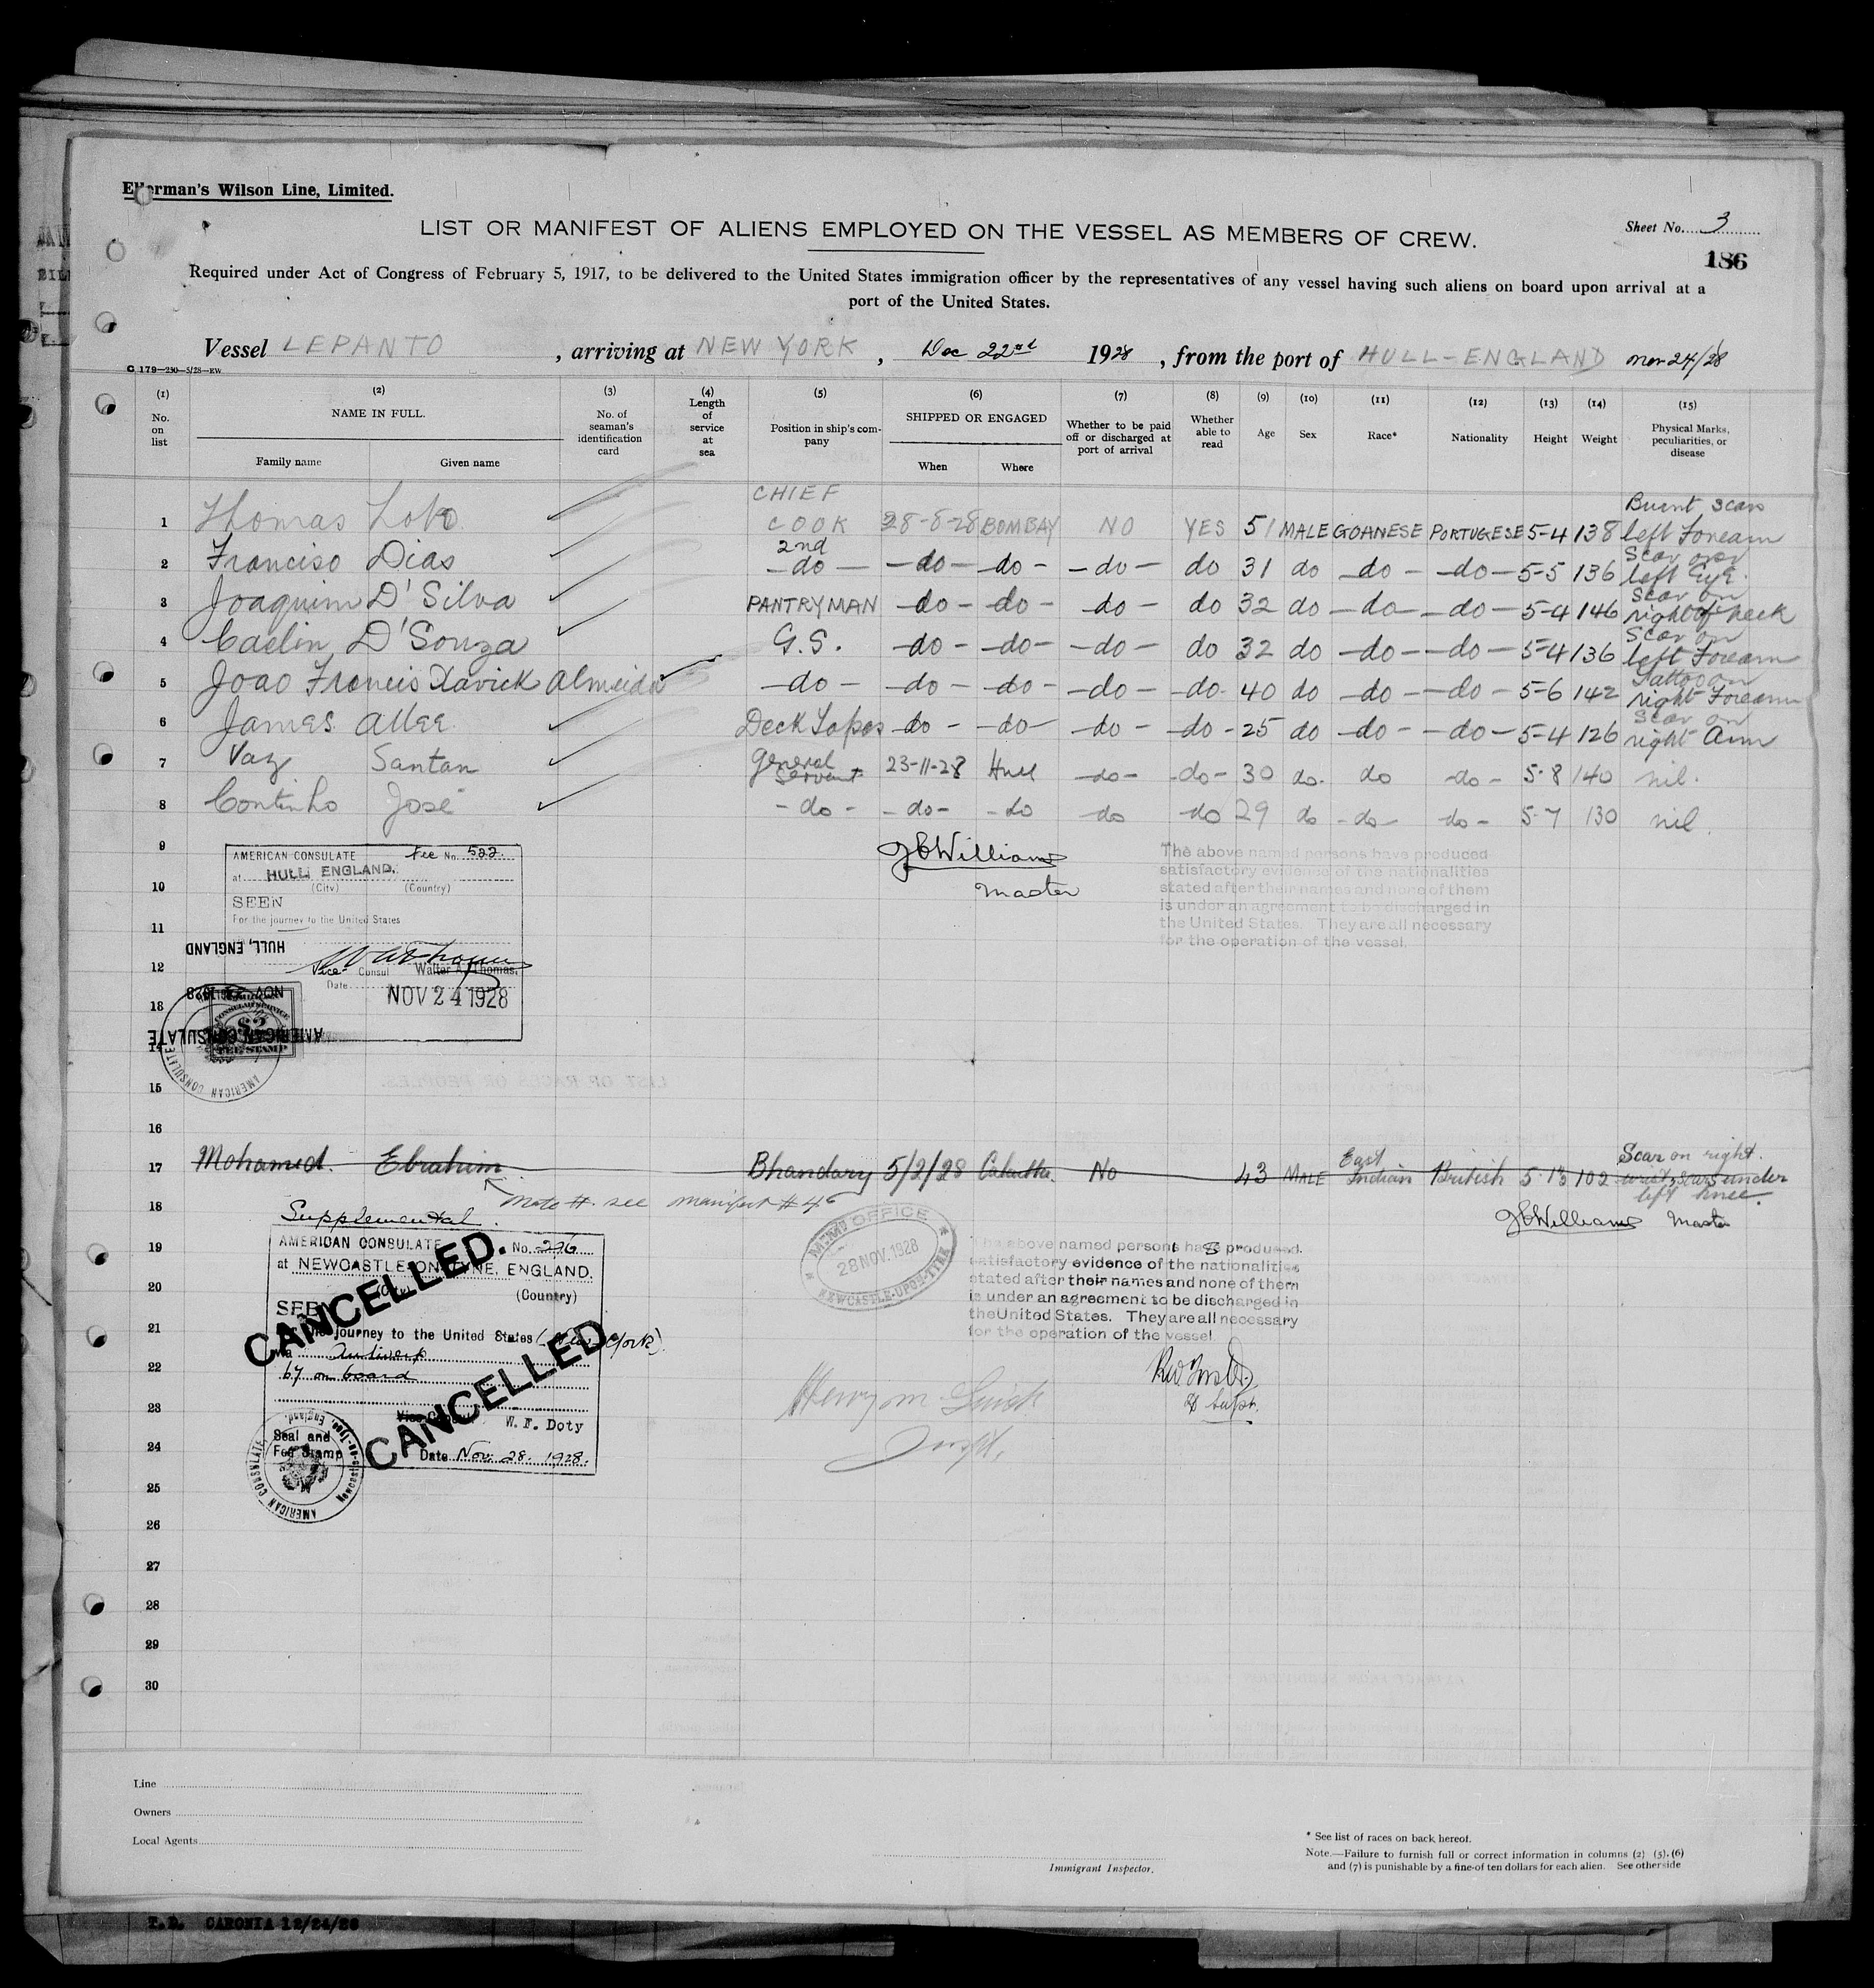 Ellerman's Wilson Line, Limited.
LIST OR MANIFEST OF ALIENS EMPLOYED ON THE VESSEL AS MEMBERS OF CREW.
Sheet No. 3
186
Required under Act of Congress of February 5, 1917, to be delivered to the United States immigration officer by the representatives of any vessel having such aliens on board upon arrival at a
port of the United States.
Vessel LEPANTO , arriving at NEW YORK , Dec 22nd 1928 , from the port of HULL-ENGLAND nov 24/28
C 179-250-5/28-RW
(1) (2) (3) (4) (5) (6) (7) (8) (9) (10) (11) (12) (13) (14) (15)
No. on list
NAME IN FULL.
Family name Given name
No. of seaman's identification card
Length of service at sea
Position in ship's company
SHIPPED OR ENGAGED
When Where
Whether to be paid off or discharged at port of arrival
Whether able to read
Age Sex Race* Nationality Height Weight
Physical Marks, peculiarities, or disease
1 Thomas Lobo CHIEF COOK 28-8-28 BOMBAY NO YES 51 MALE GOANESE PORTUGESE 5-4 138 Burnt scar left Foream
2 Franciso Dias 2nd -do- -do- -do- -do- do 31 do -do- -do- 5-5 136 Scar over left Eye.
3 Joaquim D'Silva PANTRYMAN -do- -do- -do- do 32 do -do- -do- 5-4 146 Scar on right of neck
4 Caelin D'Souza G.S. -do- -do- -do- do 32 do -do- -do- 5-4 136 Scar on left Foream
5 Joao Francis Xavick Almeida -do- -do- -do- -do- -do- 40 do -do- -do- 5-6 142 Tattoo on right Foream
6 James Allee Deck Topas -do- -do- -do- -do- 25 do -do- -do- 5-4 126 Scar on right Arm
7 Vaz Santan General Servant 23-11-28 Hull -do- -do- 30 do. do -do- 5-8 140 nil.
8 Continho José -do- -do- -do do -do 29 do -do- do- 5-7 130 nil.
9
10
11
12
13
14
15
16
JCWilliams
Master
The above named persons have produced
satisfactory evidence of the nationalities
stated after their names and none of them
is under an agreement to be discharged in
the United States. They are all necessary
for the operation of the vessel.
AMERICAN CONSULATE Fee No. 522.
at HULL ENGLAND.
(City) (Country)
SEEN
For the journey to the United States
Vice Consul Walter A. Thomas.
Date NOV 24 1928
HULL, ENGLAND
AMERICAN CONSULATE
CONSULAR SERVICE
$2
FEE STAMP
AMERICAN CONSULATE
17 Mohamed. Ebrahim Bhandary 5/2/28 Calcutta. No 43 MALE East Indian British 5·1½ 102 Scar on right wrist, scars under left knee.
note #. see manifest # 4
JCWilliams Master
18
19
20
21
22
23
24
25
26
27
28
29
30
Supplemental.
AMERICAN CONSULATE No. 296
at NEWCASTLE-ON-TYNE, ENGLAND.
(City) (Country)
SEEN
For the journey to the United States (New York).
via Antwerp
67 on board
Vice Consul W. F. Doty
Seal and
Fee Stamp
Date Nov. 28. 1928.
CANCELLED.
CANCELLED
AMERICAN CONSULATE Newcastle-on-Tyne, England.
M.M. OFFICE
28 NOV. 1928
NEWCASTLE-UPON-TYNE
The above named person has produced
satisfactory evidence of the nationalities
stated after their names and none of them
is under an agreement to be discharged in
the United States. They are all necessary
for the operation of the vessel.
Line
Owners
Local Agents
Immigrant Inspector.
* See list of races on back hereof.
Note.—Failure to furnish full or correct information in columns (2) (5), (6)
and (7) is punishable by a fine of ten dollars for each alien. See otherside
T.D. CARONIA 12/24/28